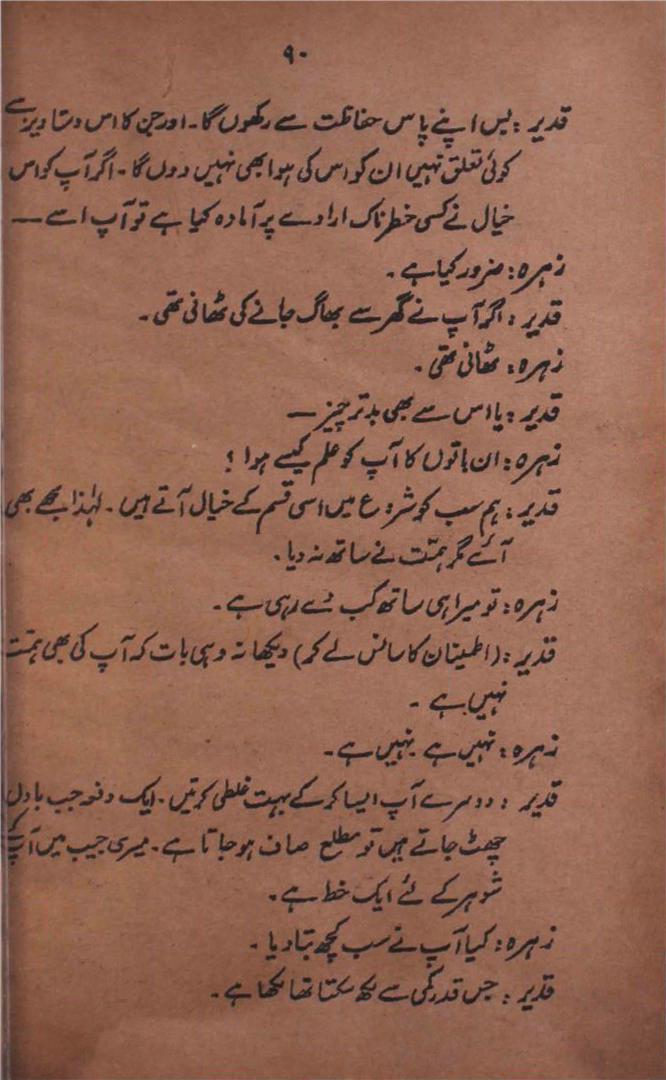 ۹۰
قدیر : بس اپنے پاس حفاظت سے رکھوں گا۔ اور جن کا اس دستاویز سے
کوئی تعلق نہیں ان کو اس کی ہوا بھی نہیں دوں گا۔ اگر آپ کو اس
خیال نے کسی خطرناک ارادے پر آمادہ کیا ہے تو آپ اسے —
زہرہ : ضرور کیا ہے۔
قدیر : اگر آپ نے گھر سے بھاگ جانے کی ٹھانی تھی۔
زہرہ : ٹھانی تھی۔
قدیر : یا اس سے بھی بدتر چیز —
زہرہ : ان باتوں کا آپ کو علم کیسے ہوا ؟
قدیر : ہم سب کو شروع میں اسی قسم کے خیال آتے ہیں۔ لہٰذا مجھے بھی
آئے مگر ہمّت نے ساتھ نہ دیا۔
زہرہ : تو میرا ہی ساتھ کب دے رہی ہے۔
قدیر : (اطمینان کا سانس لے کر) دیکھا نہ وہی بات کہ آپ کی بھی ہمّت
نہیں ہے ۔
زہرہ : نہیں ہے نہیں ہے۔
قدیر : دوسرے آپ ایسا کر کے بہت غلطی کرتیں۔ ایک دفعہ جب بادل
چھٹ جاتے ہیں تو مطلع صاف ہو جاتا ہے۔ میری جیب میں آپ کے
شوہر کے لئے ایک خط ہے۔
زہرہ : کیا آپ نے سب کچھ بتا دیا ۔
قدیر : جس قدر کمی سے لکھ سکتا تھا لکھا ہے۔